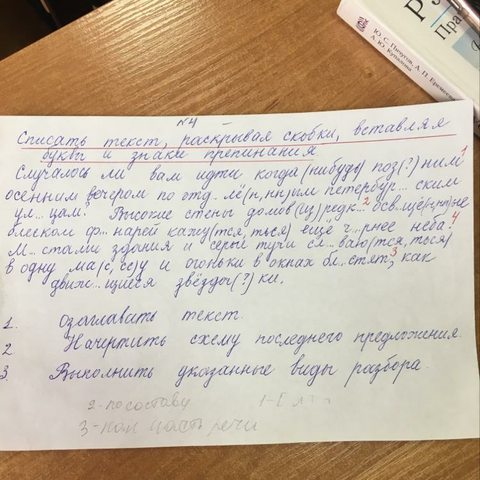 Ю. С. Пичугов, А. П. Еремеева
А. Ю. Купалова
№4
Списать текст, раскрывая скобки, вставляя
буквы и знаки препинания
Случалось ли вам идти когда(нибудь) поз(?)ним 1
осенним вечером по отд..лё(н,нн)ым петербур...ским
ул...цам? Высокие стены домов (из)редк...2 осв..щё(н,нн)ые
блеском ф...нарей кажу(тся,ться) ещё ч...рнее неба. 4
М...стами здания и серые тучи сл...ваю(тся,ться)
в одну ма(с,сс)у и огоньки в окнах бл...стят,3 как
движ...щиеся звёздоч(?)ки.
1. Озаглавить текст.
2. Начертить схему последнего предложения.
3. Выполнить указанные виды разбора.
2-по составу
3-как часть речи